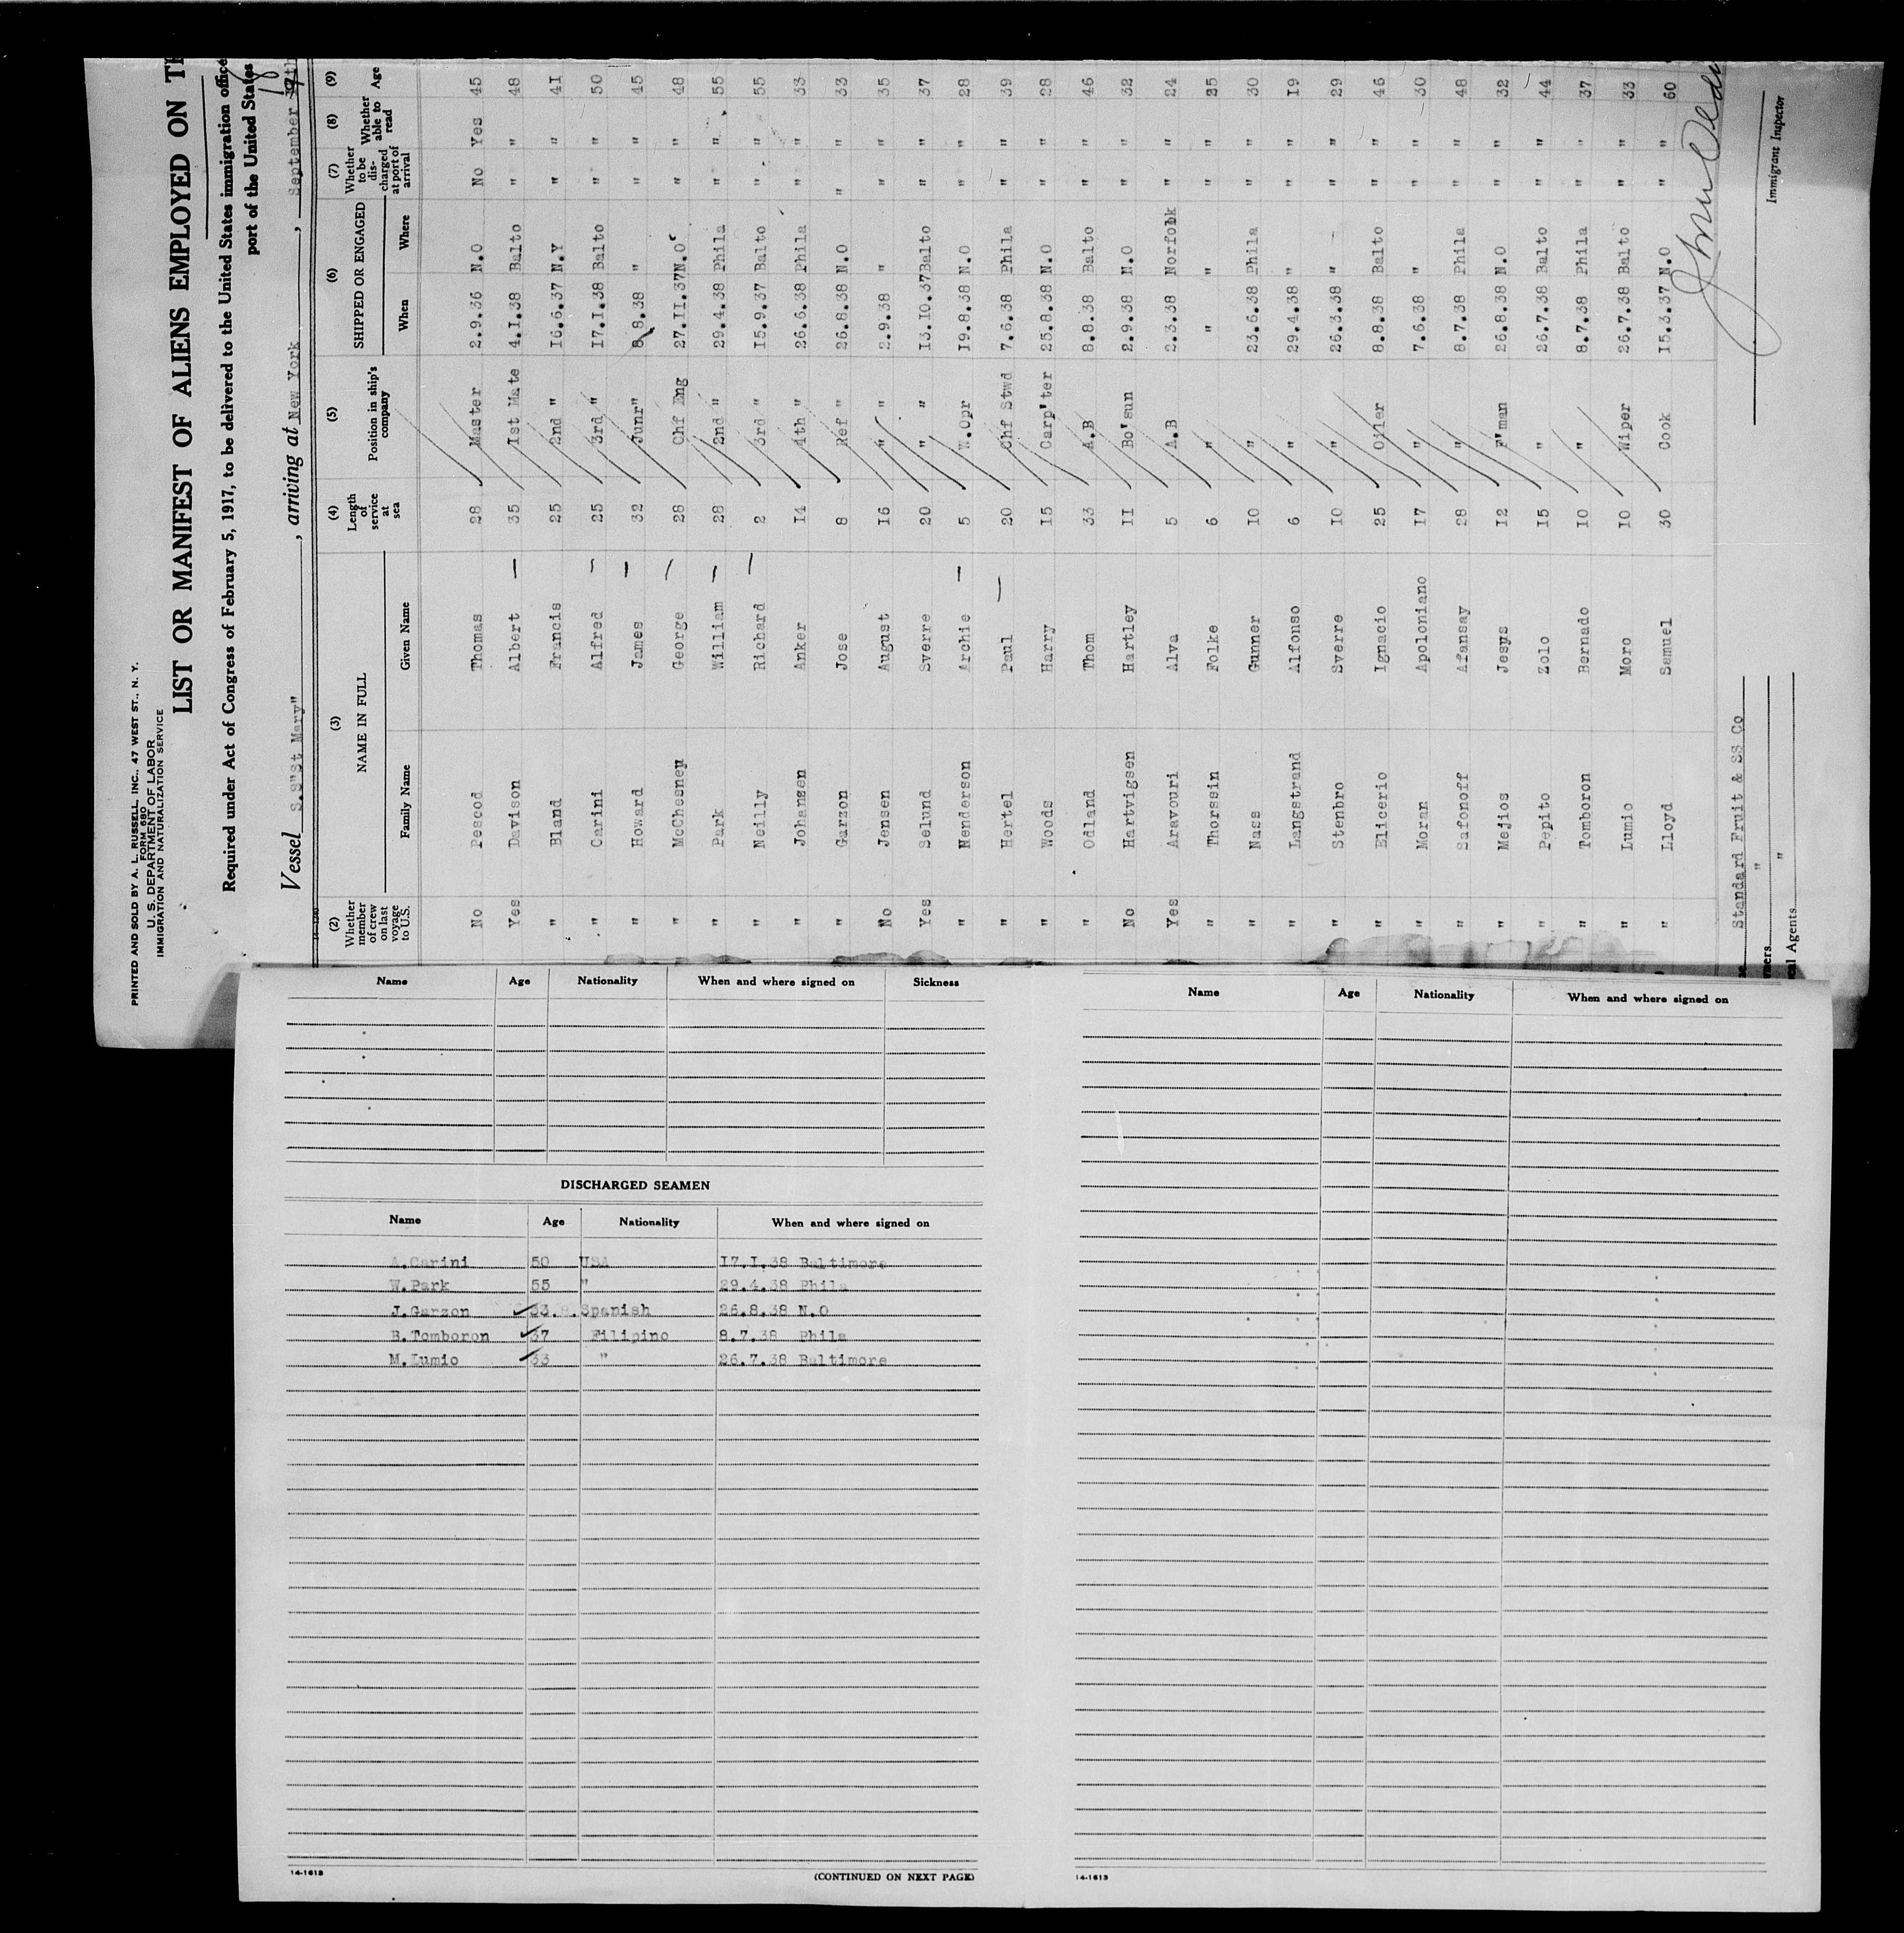 PRINTED AND SOLD BY A. L. RUSSELL, INC., 47 WEST ST., N. Y.
FORM 680
U. S. DEPARTMENT OF LABOR
IMMIGRATION AND NATURALIZATION SERVICE
LIST OR MANIFEST OF ALIENS EMPLOYED ON
Required under Act of Congress of February 5, 1917, to be delivered to the United States immigration
port of the United States
Vessel S.S"St Mary", arriving at New York, September
(2) (3) (4) (5) (6) (7) (8) (9)
Whether member of crew on last voyage to U.S. NAME IN FULL Family Name Given Name Length of service at sea Position in ship's company SHIPPED OR ENGAGED When Where Whether to be discharged at port of arrival Whether able to read Age
No Pescod Thomas 28 Master 2.9.36 N.O No Yes 45
Yes Davison Albert — 35 1st Mate 4.I.38 Balto " " 48
" Bland Francis 25 2nd " I6.6.37 N.Y " " 41
" Carini Alfred — 25 3rd " I7.I.38 Balto " " 50
" Howard James — 32 Junr" 8.8.38 " " " 45
" McChesney George — 28 Chf Eng 27.II.37N.O " " 48
" Park William — 28 2nd " 29.4.38 Phila " " 55
" Neilly Richard — 2 3rd " I5.9.37 Balto " " 55
" Johansen Anker I4 4th " 26.6.38 Phila " " 33
" Garzon Jose 8 Ref " 26.8.38 N.O " " 33
No Jensen August I6 " " 2.9.38 " " " 35
Yes Selund Sverre 20 " " I3.I0.37Balto " " 37
" Henderson Archie — 5 W.Opr I9.8.38 N.O " " 28
" Hertel Paul — 20 Chf Stwd 7.6.38 Phila " " 39
" Woods Harry I5 Carp'ter 25.8.38 N.O " " 28
" Odland Thom 33 A.B 8.8.38 Balto " " 46
No Hartvigsen Hartley II Bo'sun 2.9.38 N.O " " 32
Yes Aravouri Alva 5 A.B 2.3.38 Norfolk " " 24
" Thorssin Folke 6 " " " " "
" Nass Gunner I0 " 23.6.38 Phila " " 30
" Langstrand Alfonso 6 " 29.4.38 " " " I9
" Stenbro Sverre I0 " 26.3.38 " " " 29
" Elicerio Ignacio 25 Oiler 8.8.38 Balto " " 46
" Moran Apoloniano I7 " 7.6.38 " " " 30
" Safonoff Afansay 28 " 8.7.38 Phila " " 48
" Mejios Jesys I2 F'man 26.8.38 N.O " " 32
" Pepito Zolo I5 " 26.7.38 Balto " " 44
" Tomboron Bernado I0 " 8.7.38 Phila " " 37
" Lumio Moro I0 Wiper 26.7.38 Balto " " 33
" Lloyd Samuel 30 Cook I5.3.37 N.O " " 60
Standard Fruit & SS Co
"
Agents "
Immigrant Inspector
Name Age Nationality When and where signed on Sickness
DISCHARGED SEAMEN
Name Age Nationality When and where signed on
A.Carini 50 USA I7.I.38 Baltimore
W.Park 55 " 29.4.38 Phila
J.Garzon 33. Spanish 26.8.38 N.O
B.Tomboron 37 Filipino 8.7.38 Phila
M.Lumio 33 " 26.7.38 Baltimore
14-1613
(CONTINUED ON NEXT PAGE)
Name Age Nationality When and where signed on
14-1613